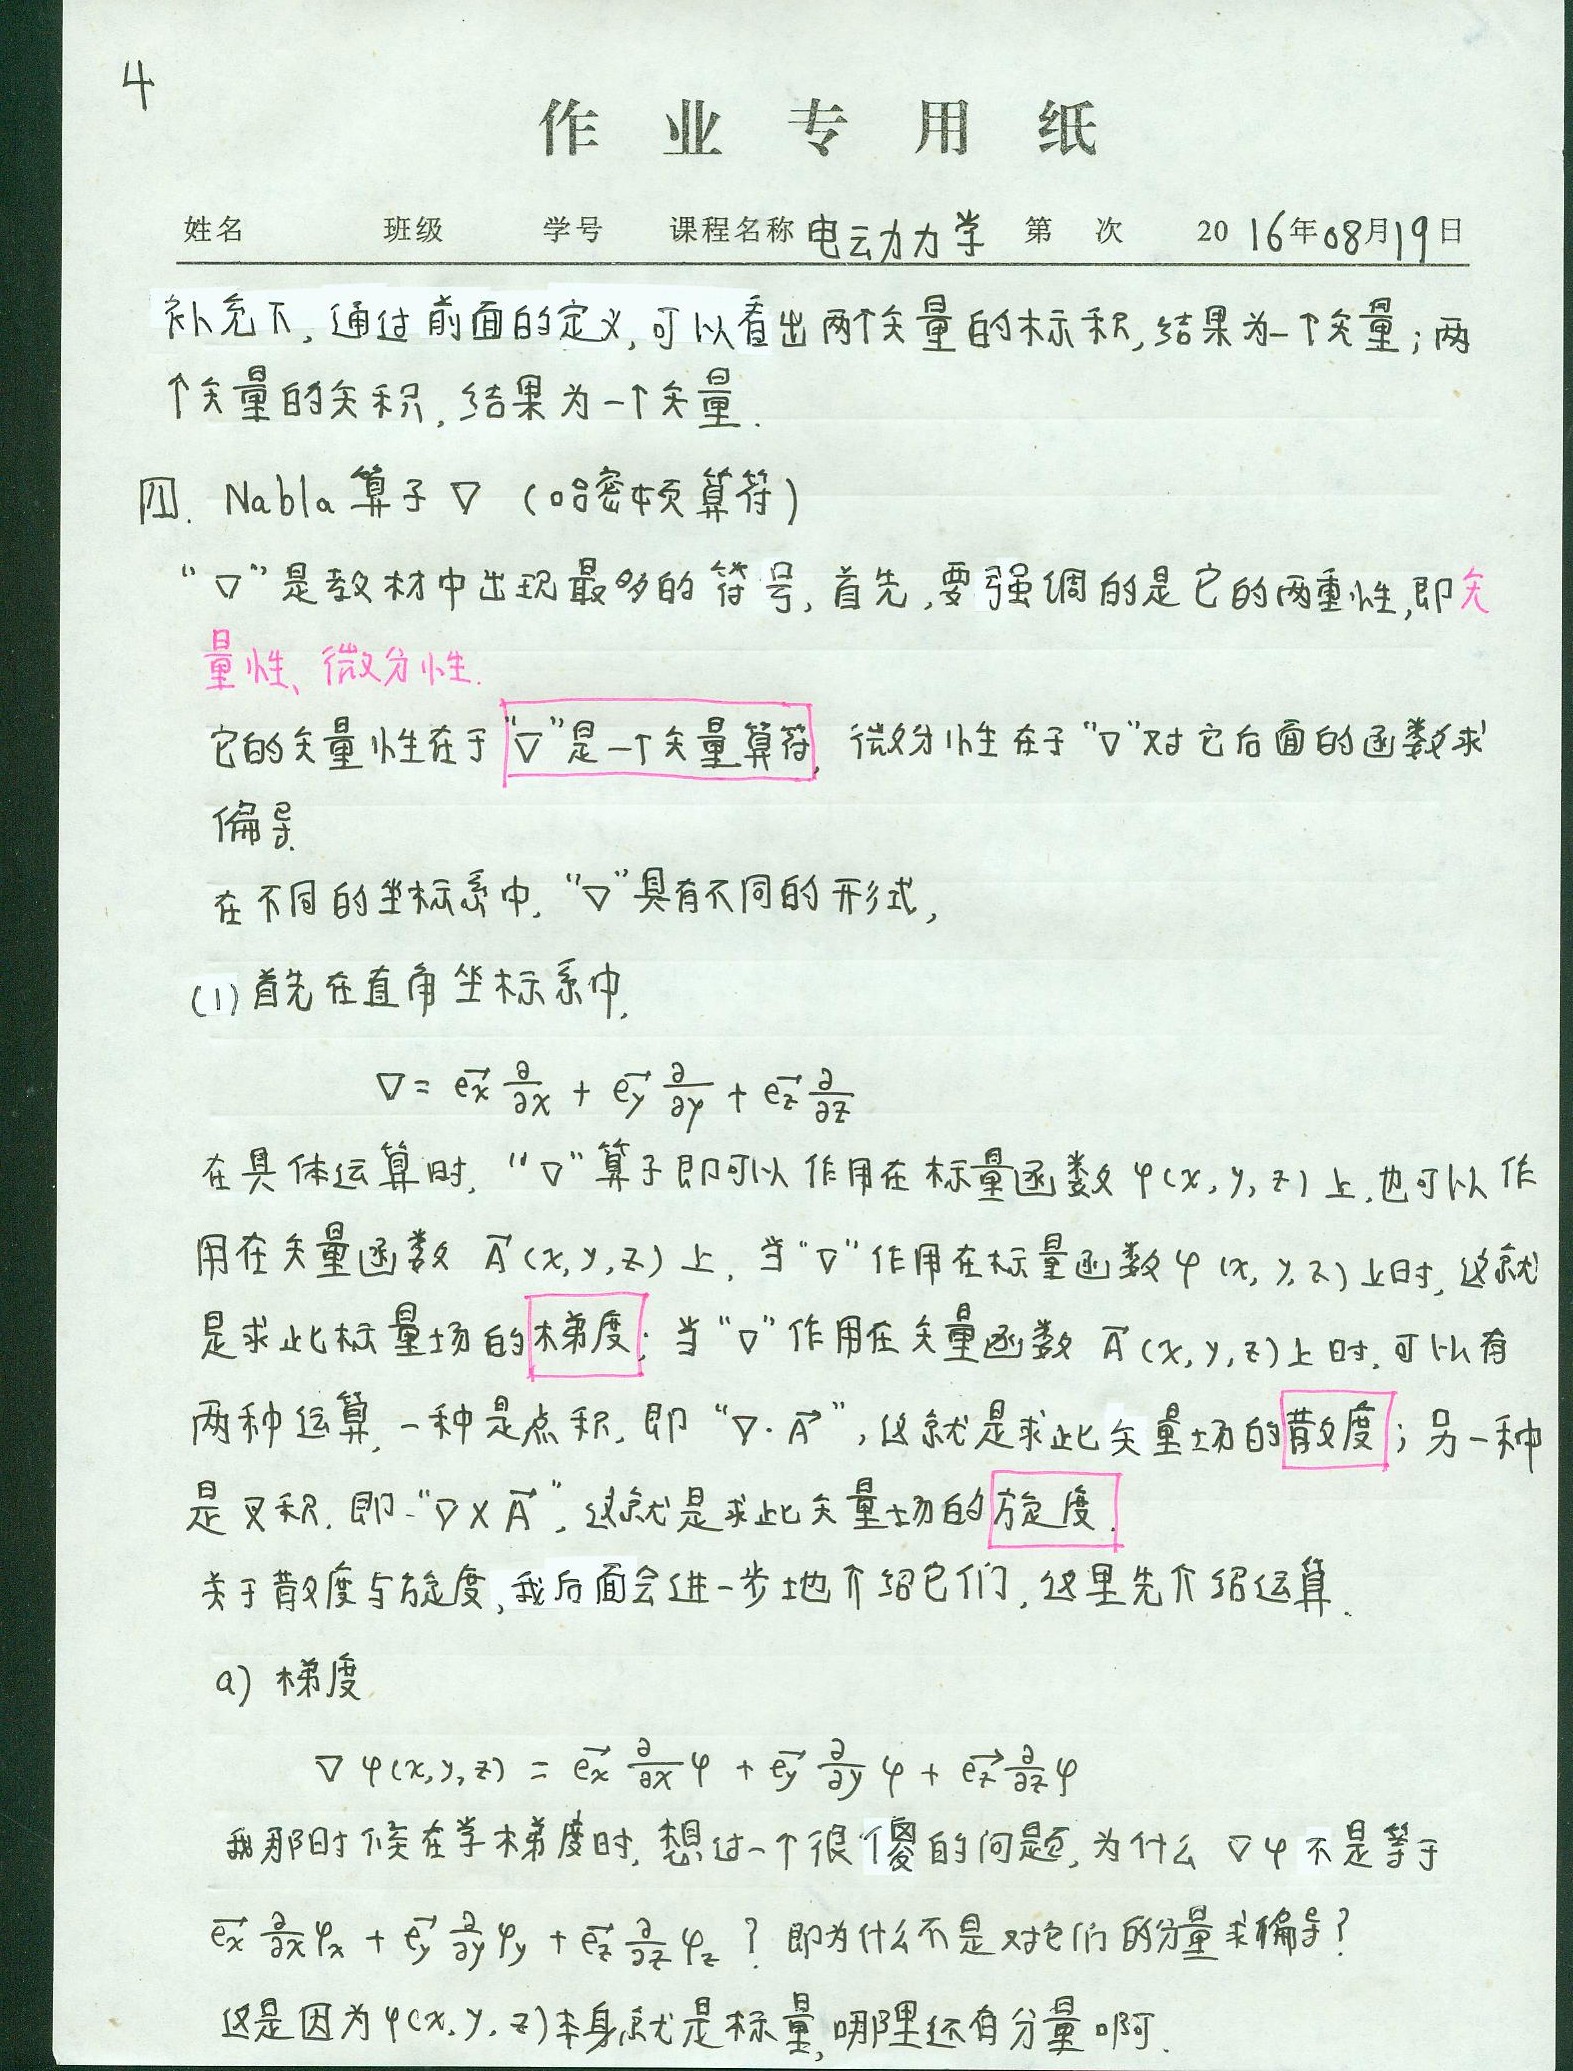 4
作业专用纸
姓名 班级 学号 课程名称 电动力力学 第 次 2016年08月19日
补充下,通过前面的定义,可以看出两个矢量的标积,结果为一个矢量;两
个矢量的矢积,结果为一个矢量.
四. Nabla 算子 ∇ (哈密顿算符)
“∇”是教材中出现最多的符号,首先,要强调的是它的两重性,即矢
量性、微分性.
它的矢量性在于“∇”是一个矢量算符,微分性在于“∇”对它后面的函数求
偏导.
在不同的坐标系中,“∇”具有不同的形式,
(1) 首先在直角坐标系中,
∇ = e⃗x ∂/∂x + e⃗y ∂/∂y + e⃗z ∂/∂z
在具体运算时,“∇”算子即可以作用在标量函数 φ(x, y, z) 上,也可以作
用在矢量函数 A⃗(x, y, z) 上,当“∇”作用在标量函数 φ(x, y, z) 上时,这就
是求此标量场的梯度;当“∇”作用在矢量函数 A⃗(x, y, z) 上时,可以有
两种运算,一种是点积,即“∇·A⃗”,这就是求此矢量场的散度;另一种
是叉积,即“∇×A⃗”,这就是求此矢量场的旋度.
关于散度与旋度,我后面会进一步地介绍它们,这里先介绍运算.
a) 梯度
∇φ(x, y, z) = e⃗x ∂/∂x φ + e⃗y ∂/∂y φ + e⃗z ∂/∂z φ
我那时候在学梯度时,想过一个很傻的问题,为什么 ∇φ 不是等于
e⃗x ∂/∂x φx + e⃗y ∂/∂y φy + e⃗z ∂/∂z φz ? 即为什么不是对它们的分量求偏导?
这是因为 φ(x, y, z) 本身就是标量,哪里还有分量啊.